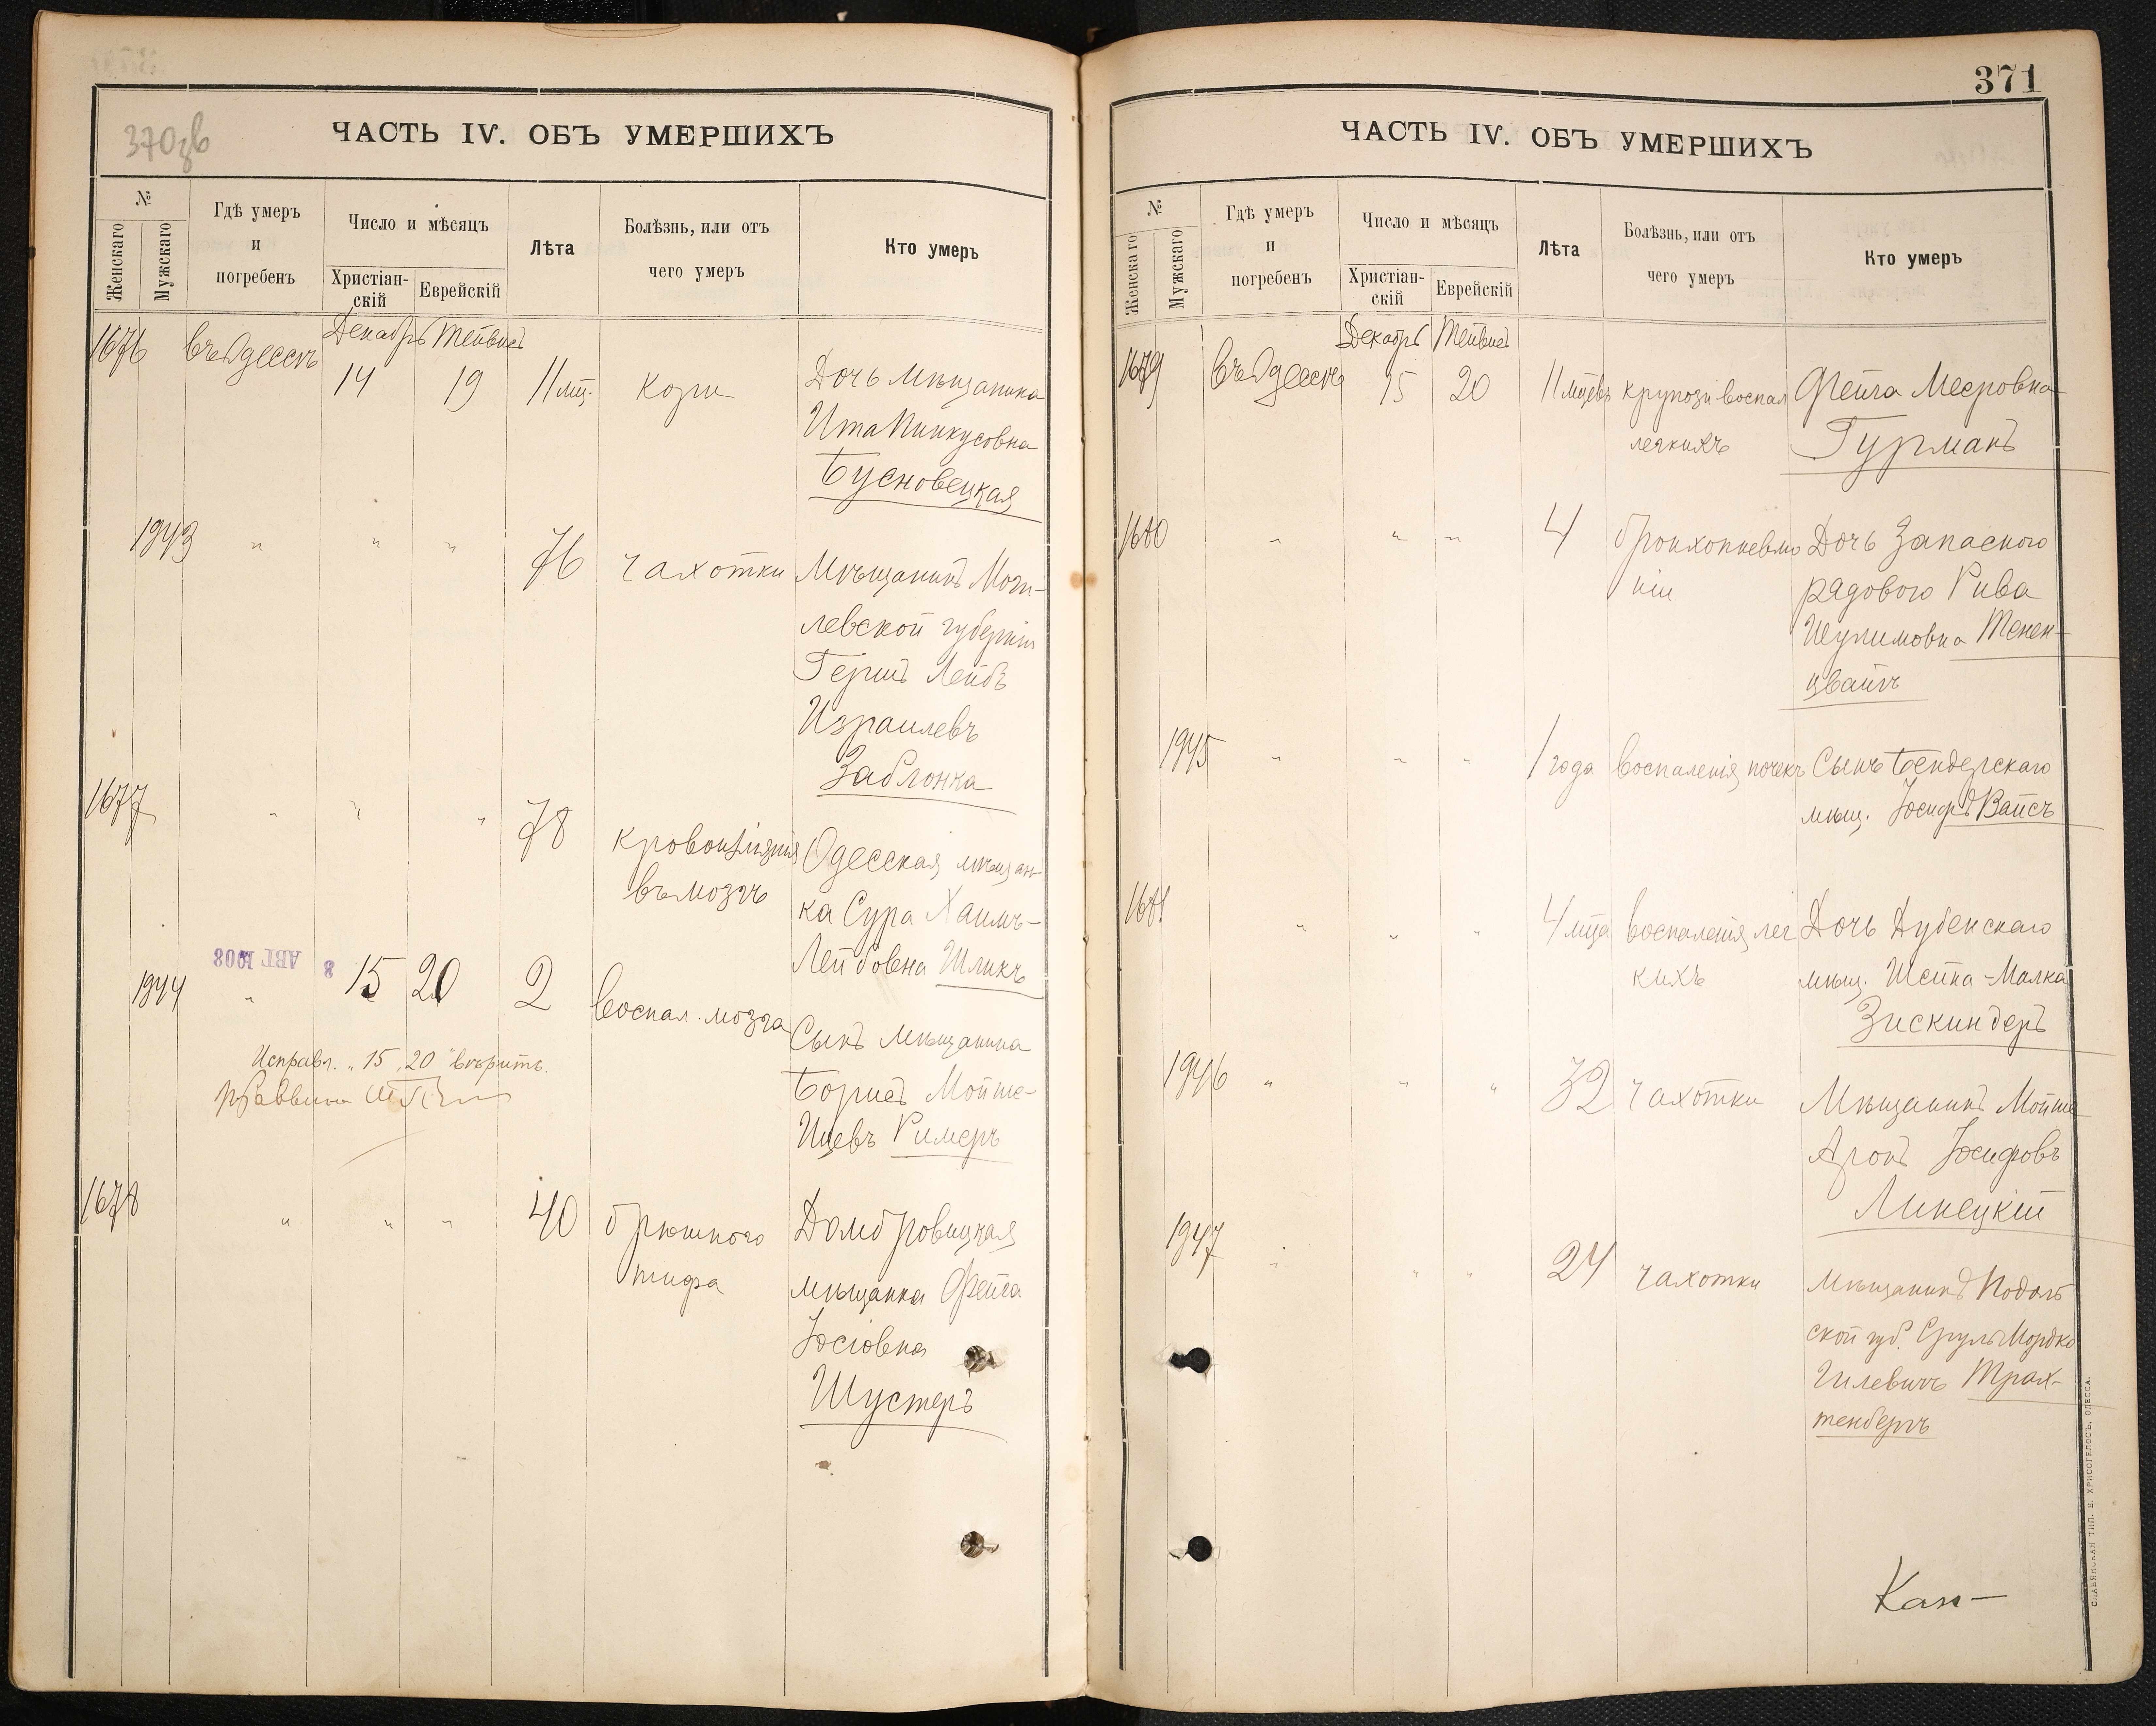 370зв
ЧАСТЬ IV. ОБЪ УМЕРШИХЪ
№
Женскаго
Мужскаго
Гдѣ умеръ
и
погребенъ
Число и мѣсяцъ
Христіан-
скій
Еврейскій
Лѣта
Болѣзнь, или отъ
чего умеръ
Кто умеръ
Декабрь Тейвисъ
1676 въ Одессѣ 14 19 11 мц. кори Дочь мѣщанина
Ита Пинкусовна
Бусновецкая
1943 " " " 76 чахотки Мѣщанинъ Моги-
левской губерніи
Гершъ Лейбъ
Израилевъ
Заблонка
1677 " " " 78 кровоизліянія Одесская мѣщан-
въ мозгъ ка Сура Хаимъ-
Лейбовна Шликъ
8 АВГ 1908
1944 " 15 20 2 воспал. мозга Сынъ мѣщанина
Исправл. "15, 20" вѣрить.
Раввинъ
Борисъ Мойше-
Ицевъ Римеръ
1678 " " " 40 брюшного Домбровицкая
тифа мѣщанка Фейга
Іосіовна
Шустеръ
371
ЧАСТЬ IV. ОБЪ УМЕРШИХЪ
№
Женскаго
Мужскаго
Гдѣ умеръ
и
погребенъ
Число и мѣсяцъ
Христіан-
скій
Еврейскій
Лѣта
Болѣзнь, или отъ
чего умеръ
Кто умеръ
Декабрь Тейвисъ
1679 въ Одессѣ 15 20 11 мцевъ крупозн воспал Фейга Мееровна
легкихъ Гурманъ
1680 " " " 4 бронхопневмо Дочь Запасного
ніи рядового Рива
Шулимовна Тенен-
цвайгъ
1945 " " " 1 года воспаленія почекъ Сынъ Бендерскаго
мѣщ. Іосифъ Вайсъ
1681 " " " 4 мца воспаленія лег Дочь Дубенскаго
кихъ мѣщ. Шейна-Малка
Зискиндеръ
1946 " " " 32 чахотки Мѣщанинъ Мойше
Аронъ Іосифовъ
Линецкій
1947 " " " 24 чахотки мѣщанинъ Подоль
ской губ. Сруль Мордко
Гилевичъ Трах-
тенбергъ
Кан-
СЛАВЯНСКАЯ ТИП. Е. ХРИСОГЕЛОСЪ, ОДЕССА.